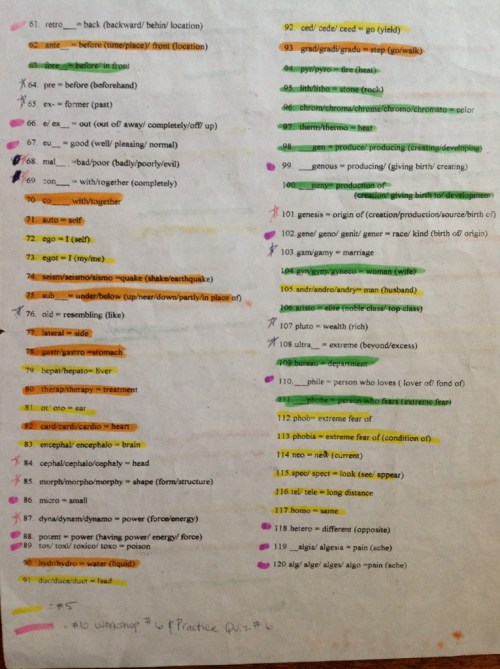 61. retro___= back (backward/ behin/ location)
62. ante__ = before (time/place)/ front (location)
63. fore__= before/ in front
64. pre = before (beforehand)
65. ex- = former (past)
66. e/ ex__ = out (out of/ away/ completely/off/ up)
67. eu__ = good (well/ pleasing/ normal)
68. mal__ =bad/poor (badly/poorly/evil)
69. con___ = with/together (completely)
70. co____ with/together
71. auto = self
72. ego = I (self)
73. egot = I (my/me)
74. seism/seismo/sismo =quake (shake/earthquake)
75. sub___ = under/below (up/near/down/partly/in place of)
76. oid = resembling (like)
77. lateral = side
78. gastr/gastro =stomach
79. hepat/hepato= liver
80. therap/therapy = treatment
81. ot/ oto = ear
82. card/cardi/cardio = heart
83. encephal/ encephalo = brain
84. cephal/cephalo/cephaly = head
85. morph/morpho/morphy = shape (form/structure)
86. micro = small
87. dyna/dynam/dynamo = power (force/energy)
88. potent = power (having power/ energy/ force)
89. tox/ toxi/ toxico/ toxo = poison
90. hydr/hydro = water (liquid)
91. duc/duce/duct = lead
- #5
- #10 workshop # 6 & Practice Quiz # 6
92. ced/ cede/ ceed = go (yield)
93. grad/gradi/gradu = step (go/walk)
94. pyr/pyro = fire (heat)
95. lith/litho = stone (rock)
96. chrom/chroma/chrome/chromo/chromato = color
97. therm/thermo = heat
98. ___gen = produce/ producing (creating/developing)
99. ___genous = producing/ (giving birth/ creating)
100. ___geny= production of
(creation/ giving birth to/ development)
101. genesis = origin of (creation/production/source/birth of)
102. gene/ geno/ genit/ gener = race/ kind (birth of/ origin)
103. gam/gamy = marriage
104. gyn/gyny/gyneco = woman (wife)
105. andr/andro/andry= man (husband)
106. aristo = elite (noble class/ top class)
107 pluto = wealth (rich)
108. ultra__ = extreme (beyond/excess)
109. bureau = department
110. ___phile = person who loves ( lover of/ fond of)
111. ___phobe = person who fears (extreme fear)
112 phob= extreme fear of
113 phobia = extreme fear of (condition of)
114 neo = new (current)
115. spec/ spect = look (see/ appear)
116 tel/ tele = long distance
117. homo = same
118. hetero = different (opposite)
119 __algia/ algesia = pain (ache)
120 alg/ alge/ alges/ algo =pain (ache)